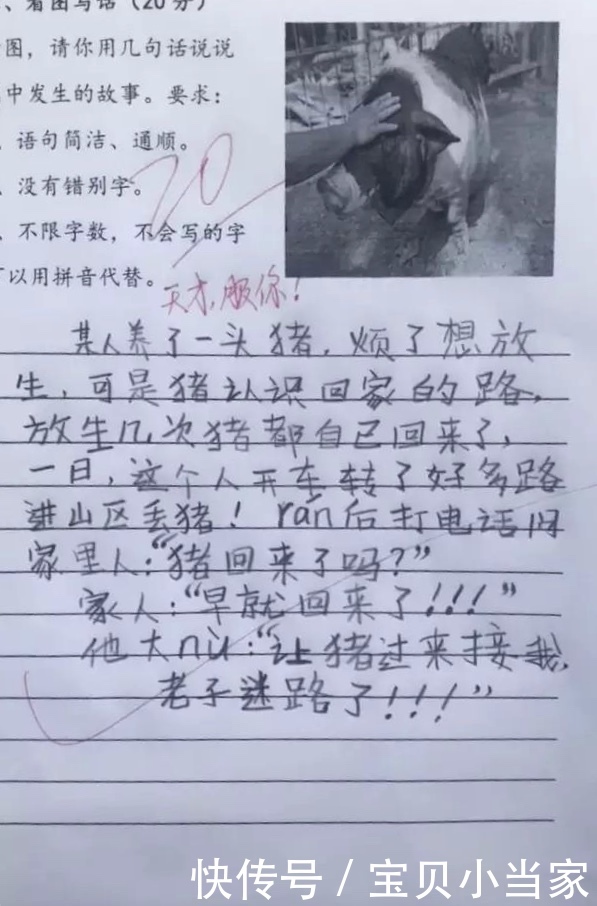 、看图写话（20分）
图，请你用几句话说说
中发生的故事。要求：
、语句简洁、通顺。
、没有错别字。
、不限字数，不会写的字
可以用拼音代替。
20
天才，服你！
某人养了一头猪，烦了想放
生，可是猪认识回家的路，
放生几次猪都自己回来了，
一日，这个人开车转了好多路
进山区丢猪！rán后打电话问
家里人：“猪回来了吗？”
家人：“早就回来了！！！”
他大nù：“让猪过来接我，
老子迷路了！！！”
快传号/宝贝小当家